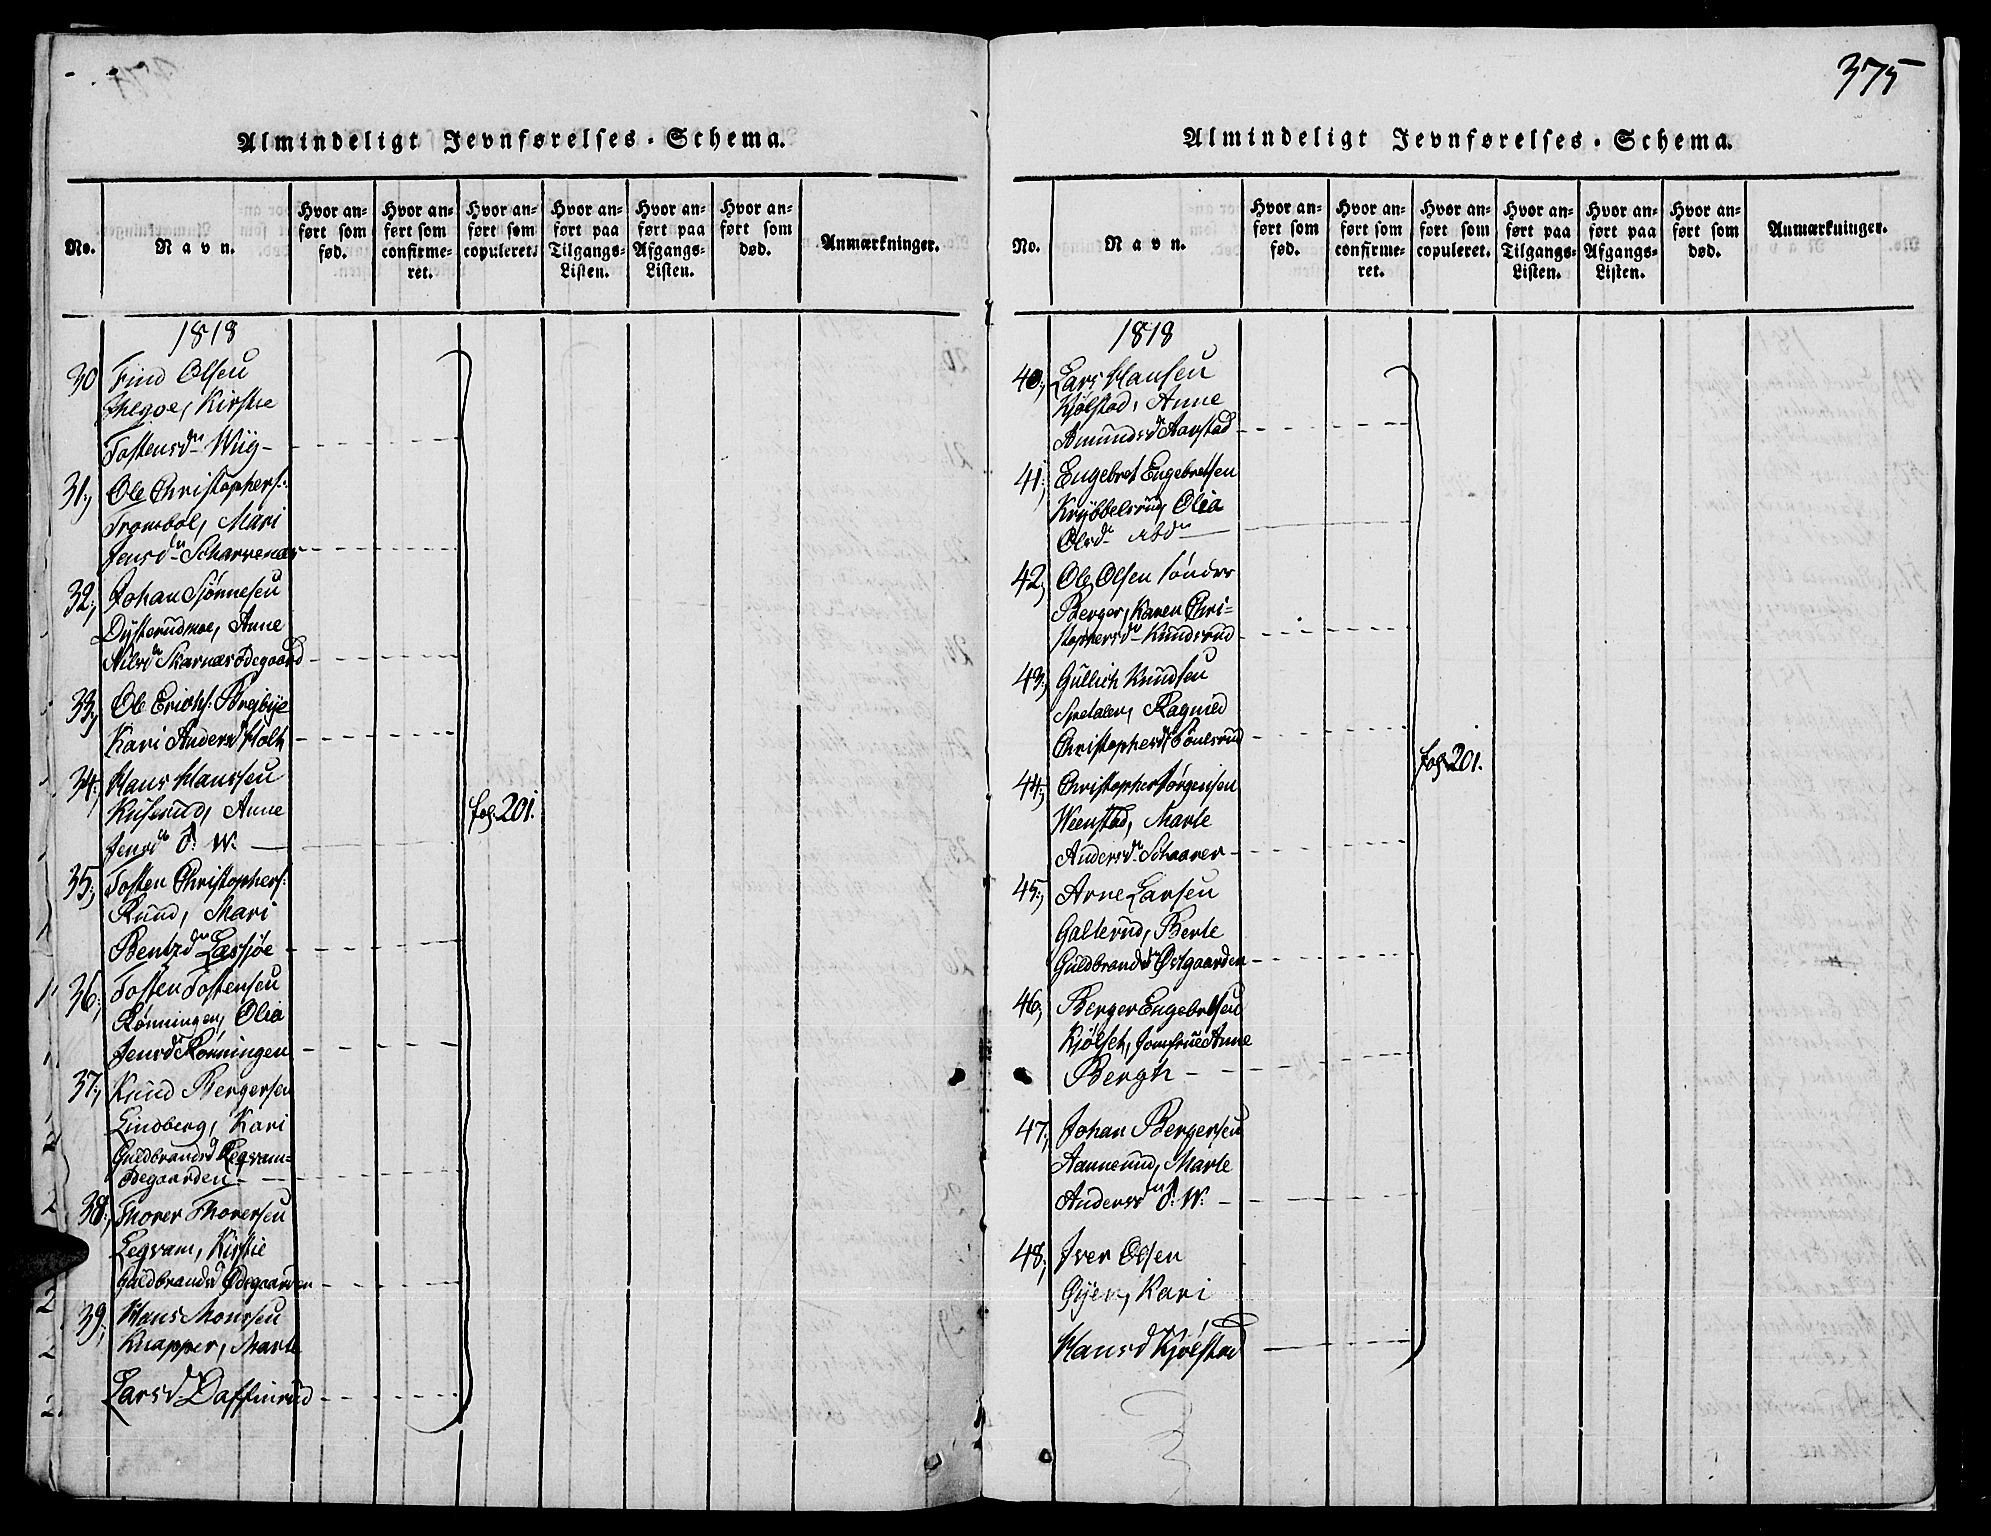 Almindeligt Jevnførelses-Schema.
No.
Navn.
Hvor anført som fød.
Hvor anført som confirmeret.
Hvor anført som copuleret.
Hvor anført paa Tilgangs-Listen.
Hvor anført paa Afgangs-Listen.
Hvor anført som død.
Anmærkninger.
1818
30 Find Olsen
Kirstie
Tostensdr Wiig
31, Ole Christophers:
Trombol, Mari
Jensdr Scharrenær
32, Johan Sjønnesen
Dysterudmoe, Anne
Nilsdr Skarnæsødegaard
33, Ole Erichs: Bregbye
Kari Andersd Holth
34, Hans Hanssen
Kuserud, Anne
Jensdr S. W.
fol. 201.
35, Tosten Christophers:
Ruud, Mari
Bentzdr Læssjøe
36, Tosten Tostensen
Rønningen, Olia
Jensdr Rønningen
37, Knud Bergersen
Lindberg, Kari
Guldbrandsd Legvam-
ødegaarden
38, Thorer Thorersen
Legvam, Kirstie
Guldbrandsd Ødegaarden
39, Hans Monssen
Knapper, Marte
Larsdr Daffinrud
375
Almindeligt Jevnførelses-Schema.
No.
Navn.
Hvor anført som fød.
Hvor anført som confirmeret.
Hvor anført som copuleret.
Hvor anført paa Tilgangs-Listen.
Hvor anført paa Afgangs-Listen.
Hvor anført som død.
Anmærkninger.
1818
40, Lars Hansen
Kjølstad, Anne
Amundsdr Aarstad
41, Engebret Engebretsen
Krybbelsrug, Olia
Olsdr
42, Ole Olsen Søndre
Berger, Karen Chri-
stophersdr Knudsrud
43, Gullich Knudsen
Spetalen, Ragnild
Christophersdr
fol. 201.
44, Christopher Jørgensen
Weenstad, Marte
Andersdr Schaarer
45, Arne Larsen
Galterud, Berte
Guldbrandsdr Østgaarden
46, Berger Engebretsen
Kjølset, Jomfrue Anne
Bergh
47, Johan Bergersen
Aannerud, Marte
Andersdr S. W.
48, Iver Olsen
Øyen, Kari
Hansd Kjølstad